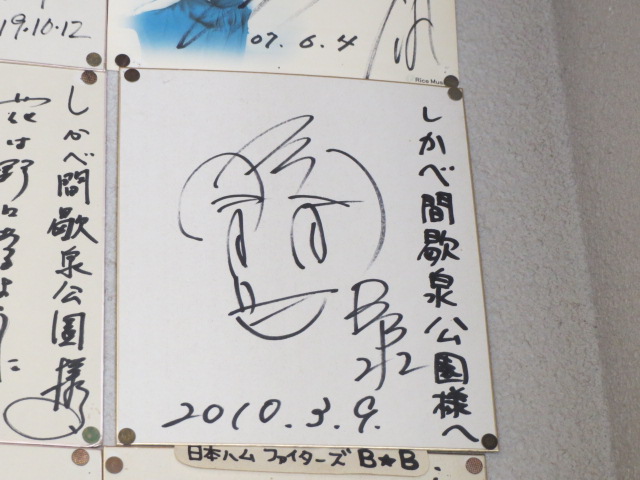 19.10.12
07.6.4
Rice Mus
しかべ間歇泉公園様
しかべ間歇泉公園様へ
BB
212
2010.3.9.
日本ハム ファイターズ B★B